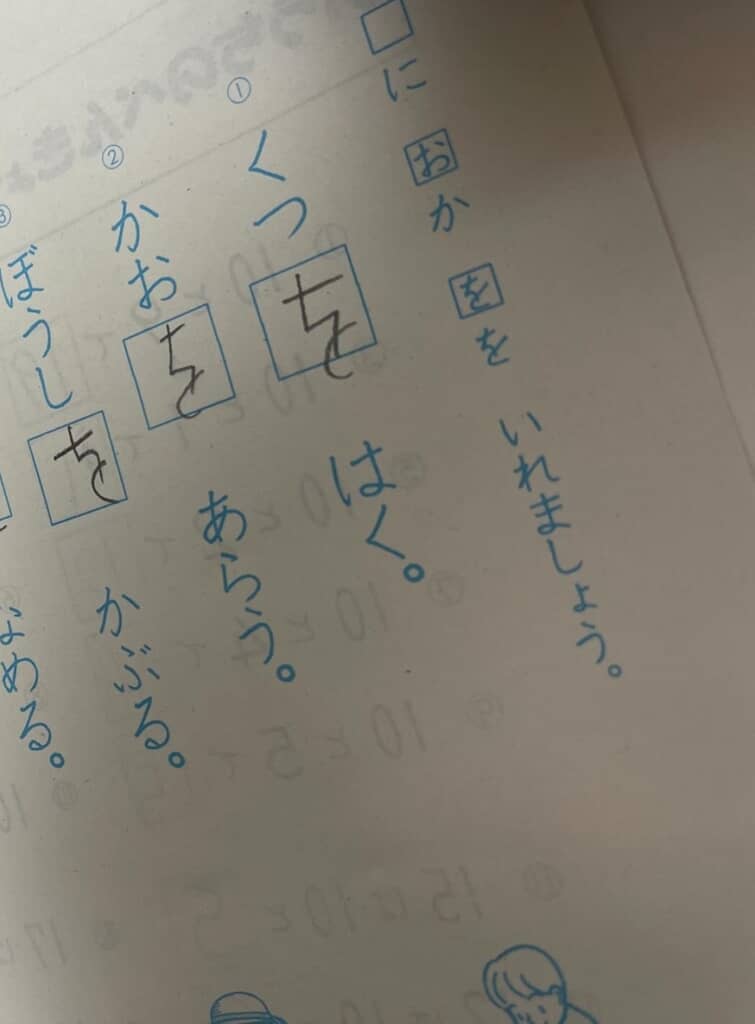 □に おか をを いれましょう。
① くつ を はく。
② かお を あらう。
③ ぼうし を かぶる。
なめる。